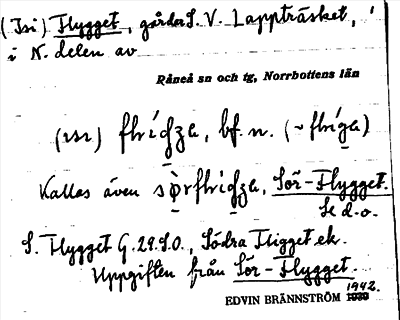 (Isi) Flygget, gårdar S. V. Lappträsket,
i N. delen av
Råneå sn och tg, Norrbottens län
bf. n.
Kallas även Sör-Flygget.
Se d. o.
S. Flygget G. 29. S.O., Södra Fligget ek.
Uppgiften från Sör-Flygget.
1942.
EDVIN BRÄNNSTRÖM 1939